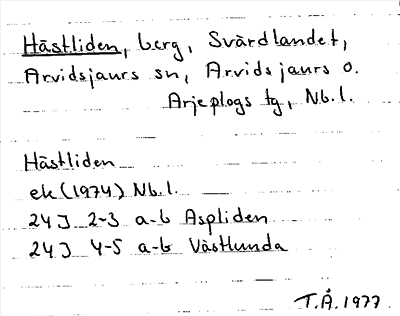 Hästliden, berg, Svärdlandet,
Arvidsjaurs sn, Arvidsjaurs o.
Arjeplogs tg, Nb.l.
Hästliden
ek (1974) Nb.l.
24J 2-3 a-b Aspliden
24J 4-5 a-b Västlunda
T.Å. 1977